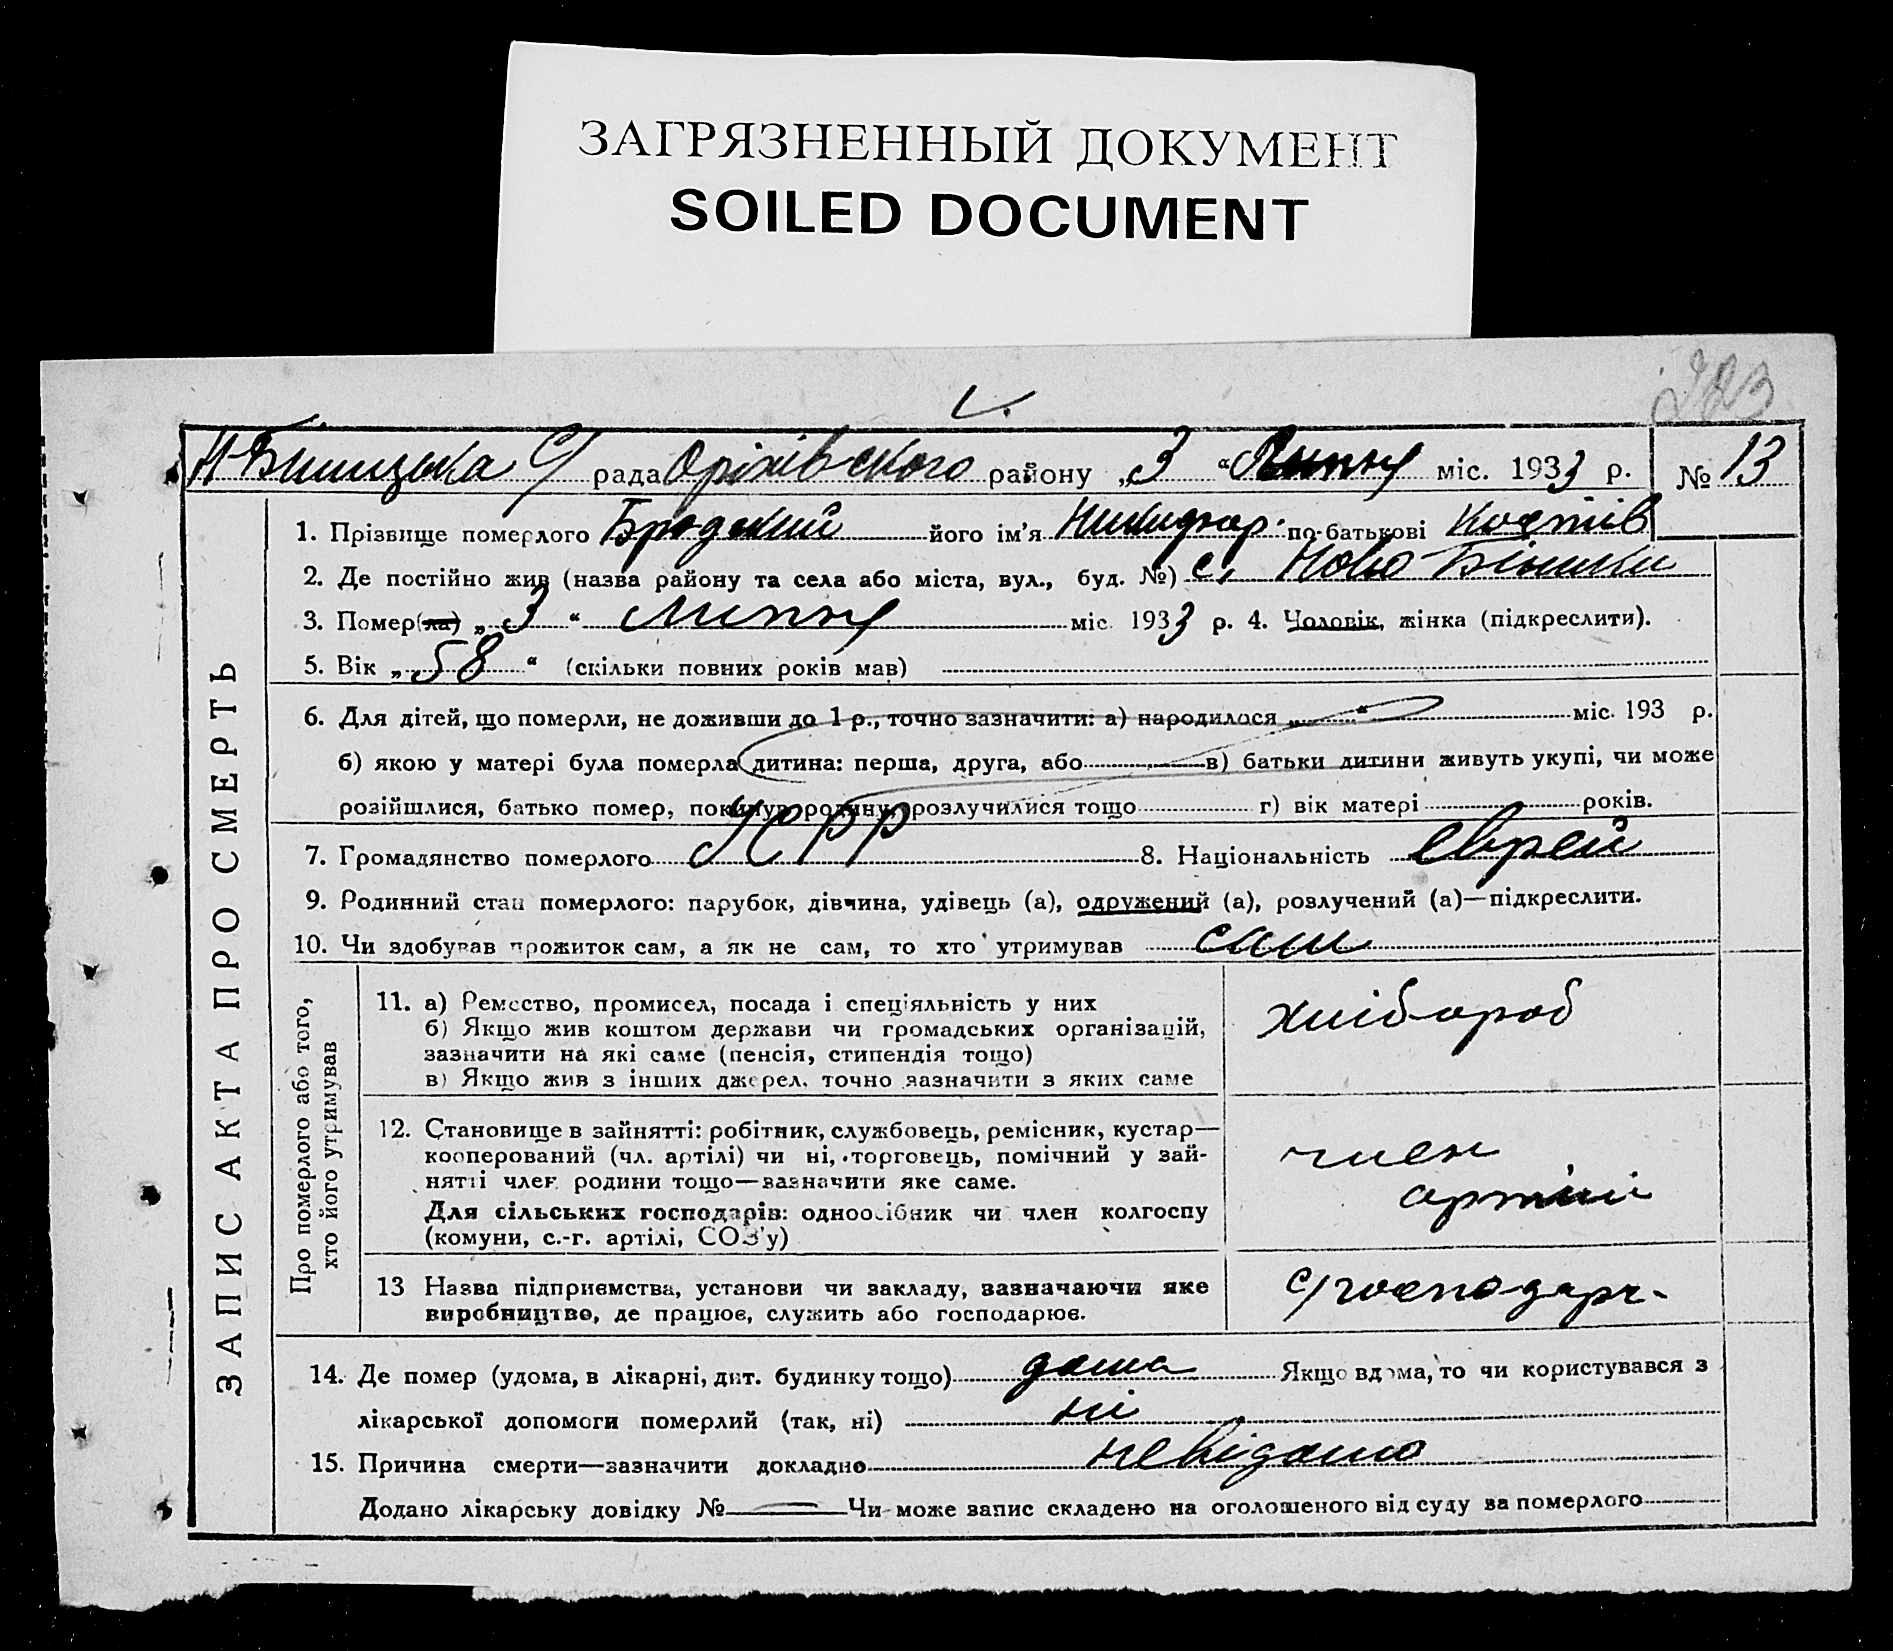 ЗАГРЯЗНЕННЫЙ ДОКУМЕНТ
SOILED DOCUMENT
223
рада Оріхівського району „ 3 “ Липня міс. 1933 р. № 13
ЗАПИС АКТА ПРО СМЕРТЬ
1. Прізвище померлого Бродский його ім'я по-батькові
2. Де постійно жив (назва району та села або міста, вул., буд. №) с. Ново
3. Помер(ла) „ 3 “ липня міс. 1933 р. 4. Чоловік, жінка (підкреслити).
5. Вік „ 58 “ (скільки повних років мав)
6. Для дітей, що померли, не доживши до 1 р., точно зазначити: а) народилося „ “ міс. 193 р.
б) якою у матері була померла дитина: перша, друга, або в) батьки дитини живуть укупі, чи може
розійшлися, батько помер, покинув родину, розлучилися тощо г) вік матері років.
7. Громадянство померлого УСРР 8. Національність еврей
9. Родинний стан померлого: парубок, дівчина, удівець (а), одружений (а), розлучений (а)—підкреслити.
10. Чи здобував прожиток сам, а як не сам, то хто утримував сам
Про померлого або того,
хто його утримував
11. а) Ремество, промисел, посада і спеціяльність у них
б) Якщо жив коштом держави чи громадських організацій,
зазначити на які саме (пенсія, стипендія тощо)
в) Якщо жив з інших джерел, точно зазначити з яких саме
хлібороб
12. Становище в зайнятті: робітник, службовець, ремісник, кустар—
кооперований (чл. артілі) чи ні, торговець, помічний у зай-
нятті член родини тощо—зазначити яке саме.
Для сільських господарів: одноосібник чи член колгоспу
(комуни, с.-г. артілі, СОЗ'у)
член
артілі
13 Назва підприємства, установи чи закладу, зазначаючи яке
виробництво, де працює, служить або господарює.
с/господарч.
14. Де помер (удома, в лікарні, дит. будинку тощо) дома Якщо вдома, то чи користувався з
лікарської допомоги померлий (так, ні) ні
15. Причина смерти—зазначити докладно невідомо
Додано лікарську довідку № — Чи може запис складено на оголошеного від суду за померлого